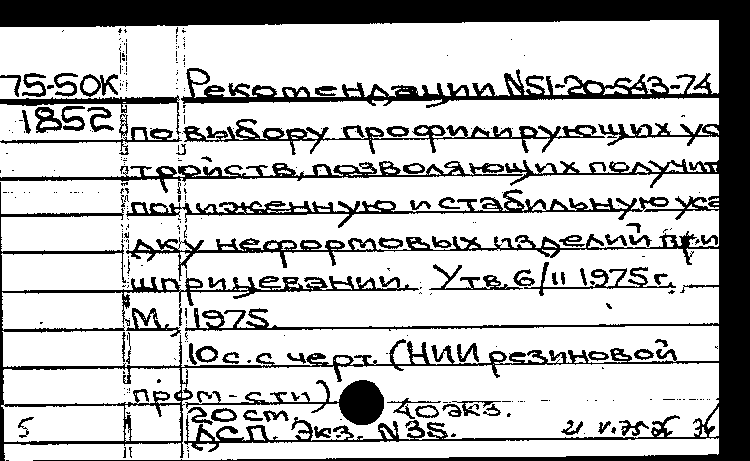 75-50К Рекомендации N51-20-543-74
1852 по выбору профилирующих ус
тройств, позволяющих получит
пониженную и стабильную уса
дку неформовых изделий при
шприцевании. Утв. 6/II 1975 г.
М., 1975.
10 с. с черт. (НИИ резиновой
пром-сти)
20 см. 40 экз.
5 ДСП. Экз. N 35.